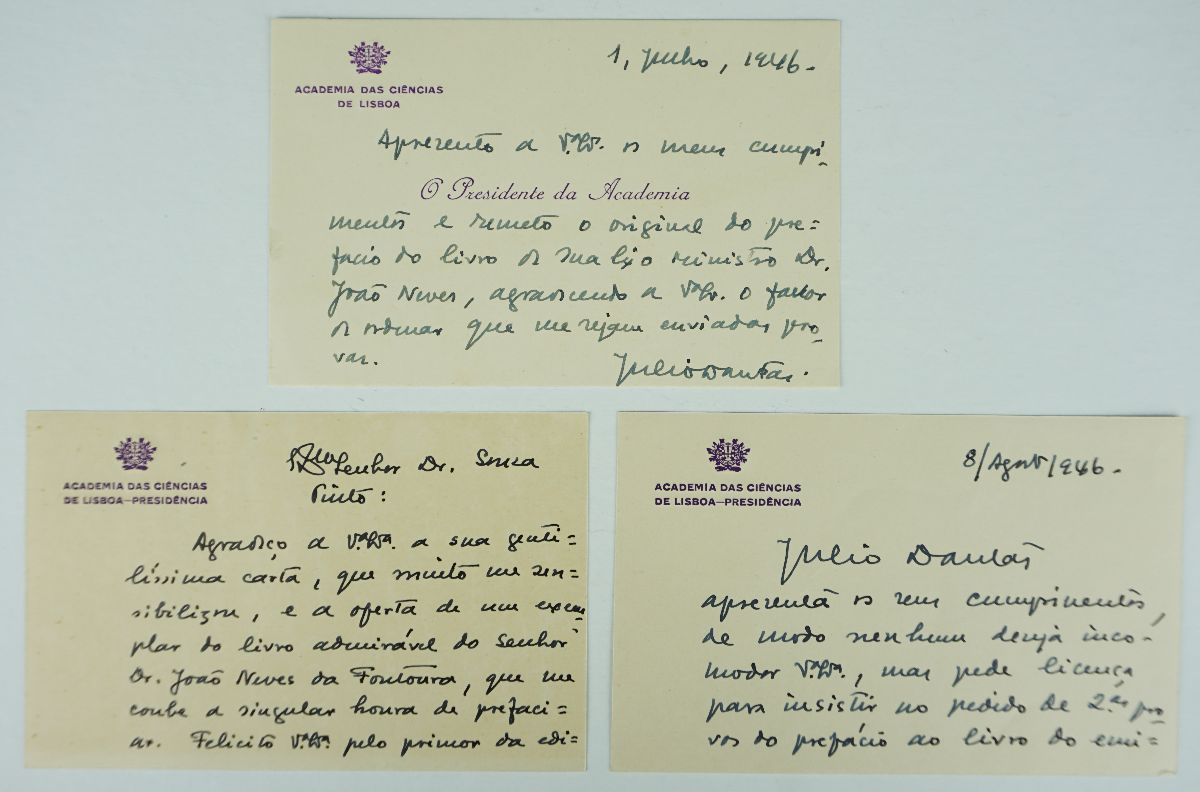 ACADEMIA DAS CIÊNCIAS
DE LISBOA
1, Julho, 1946.
Apresento a V.ª Ex.ª os meus cumpri-
O Presidente da Academia
mentos e remeto o original do pre=
fácio do livro de Sua Ex.ª o ministro Dr.
João Neves, agradecendo a V.ª Ex.ª o favor
de ordenar que me sejam enviadas pro-
vas.
Julio Dantas.
ACADEMIA DAS CIÊNCIAS
DE LISBOA—PRESIDÊNCIA
Senhor Dr. Souza
Pinto:
Agradeço a V.ª Ex.ª a sua genti=
líssima carta, que muito me sen=
sibilizou, e a oferta de um exem-
plar do livro admirável do Senhor
Dr. João Neves da Fontoura, que me
coube a singular honra de prefaci=
ar. Felicito V.ª Ex.ª pelo primor da edi=
ACADEMIA DAS CIÊNCIAS
DE LISBOA—PRESIDÊNCIA
8/Agosto/946.
Julio Dantas
apresenta os seus cumprimentos,
de modo nenhum deseja inco-
modar V.ª Ex.ª, mas pede licença
para insistir no pedido de 2.ªs pro-
vas do prefácio ao livro do emi=